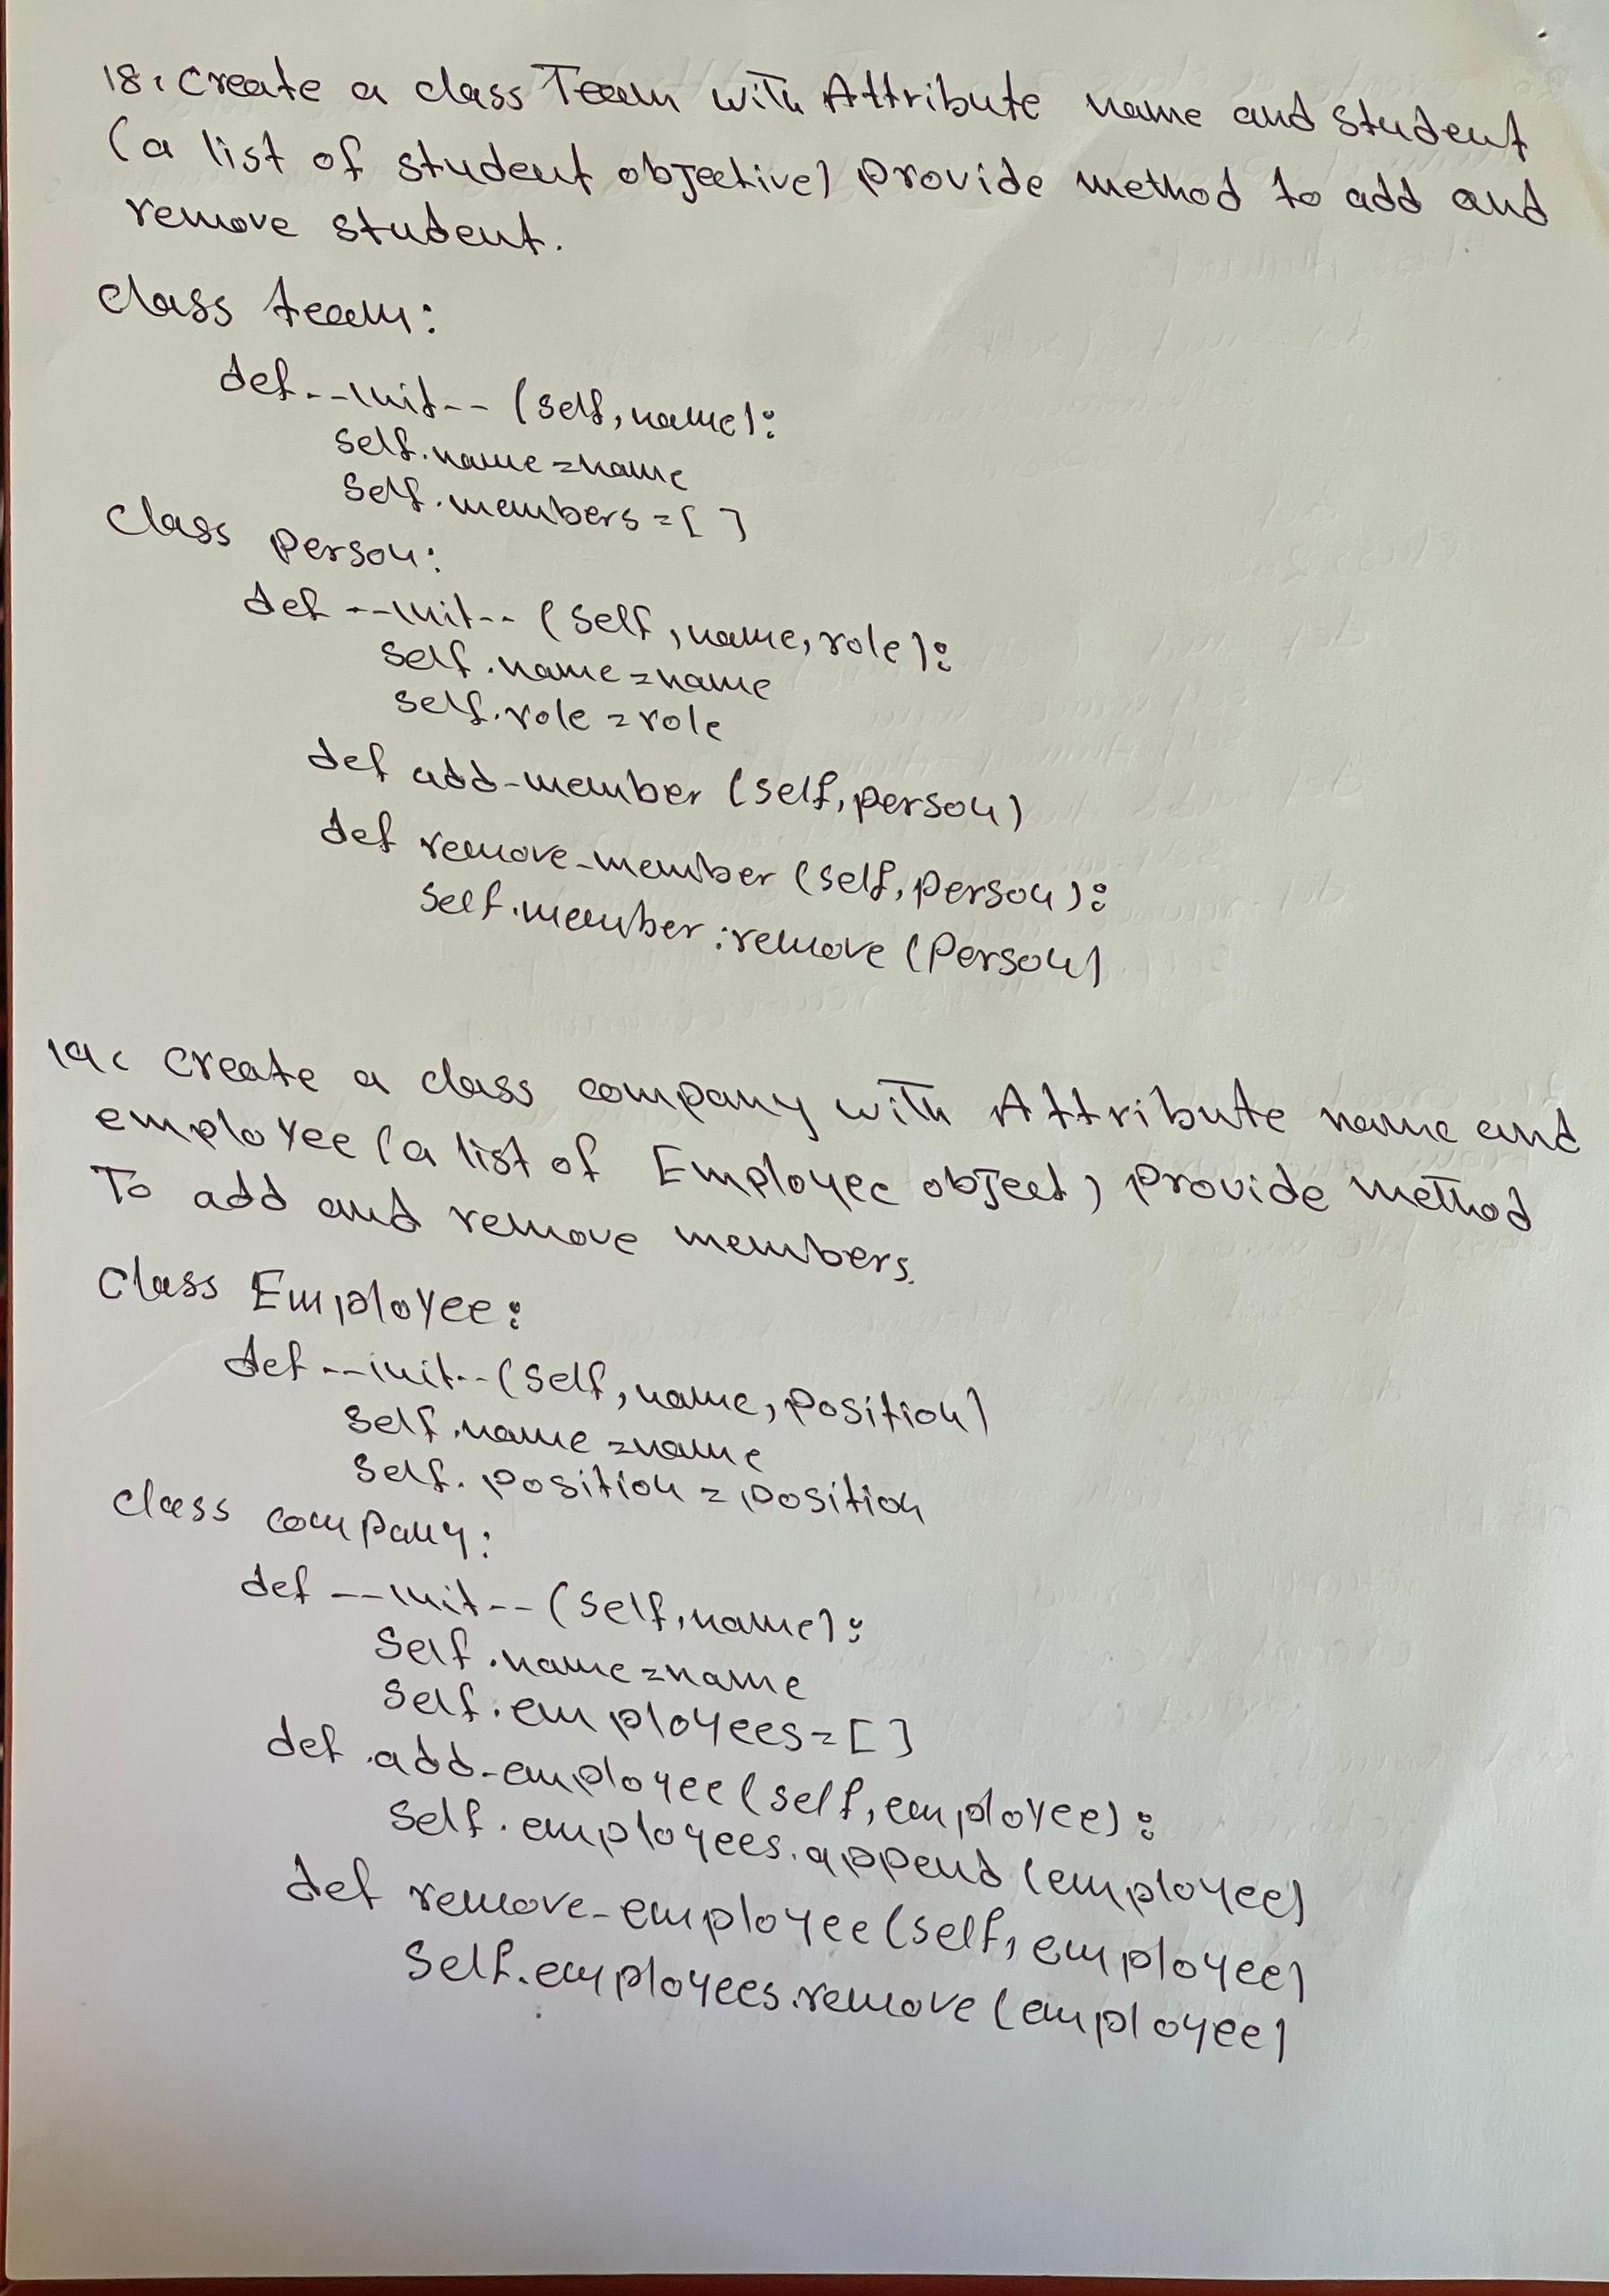 18. Create a class Team with Attribute name and student
(a list of student objective) provide method to add and
remove student.
class team:
def --init-- (self, name):
self.name = name
self.members = [ ]
class person:
def --init-- (self, name, role):
self.name = name
self.role = role
def add-member (self, person)
def remove-member (self, person):
self.member:remove (person)
19. Create a class company with Attribute name and
employee (a list of Employee object) provide method
To add and remove members.
class Employee:
def --init-- (self, name, position)
self.name = name
self.position = position
class company:
def --init-- (self, name):
self.name = name
self.employees = [ ]
def add-employee (self, employee):
self.employees.append (employee)
def remove-employee (self, employee)
self.employees.remove (employee)